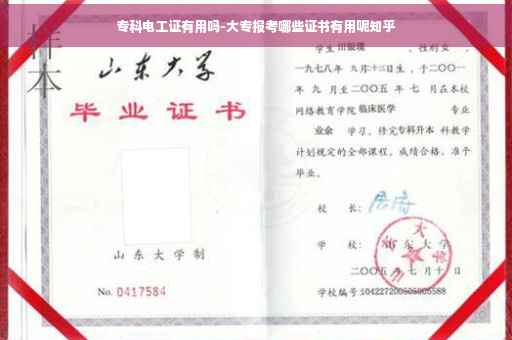 专科电工证有用吗-大专报考哪些证书有用呢知乎
样本
山东大学
毕业证书
山东大学制
No. 0417584
学生
性别女，
一九七八年 九月十三日生，于二〇〇一
年 九 月至二〇〇五 年 七 月在本校
网络教育学院 临床医学 专业
业余 学习，修完专科升本 科教学
计划规定的全部课程，成绩合格，准予
毕业。
校 长：
学 校：山东大学
二〇〇五 年 七 月 十 日
学校编号：